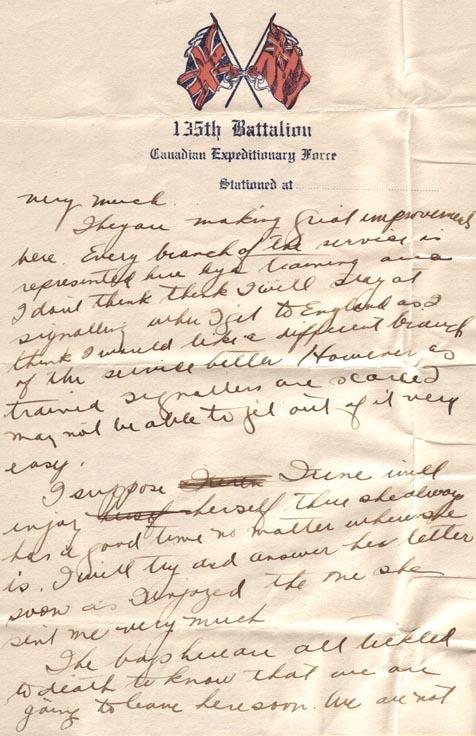 135th Battalion
Canadian Expeditionary Force
Stationed at
very much.
They are making great improvements
here. Every branch of the service is
represented here by a training and
I dont think think I will stay at
signalling when I get to England as I
think I would like a different branch
of the service better However as
trained signallers are scarce I
may not be able to get out of it very
easy.
I suppose Irene will
enjoy herself there she always
has a good time no matter where she
is. I will try and answer her letter
soon as I enjoyed the one she
sent me very much
The boys here are all tickled
to death to know that we are
going to leave here soon. We are not